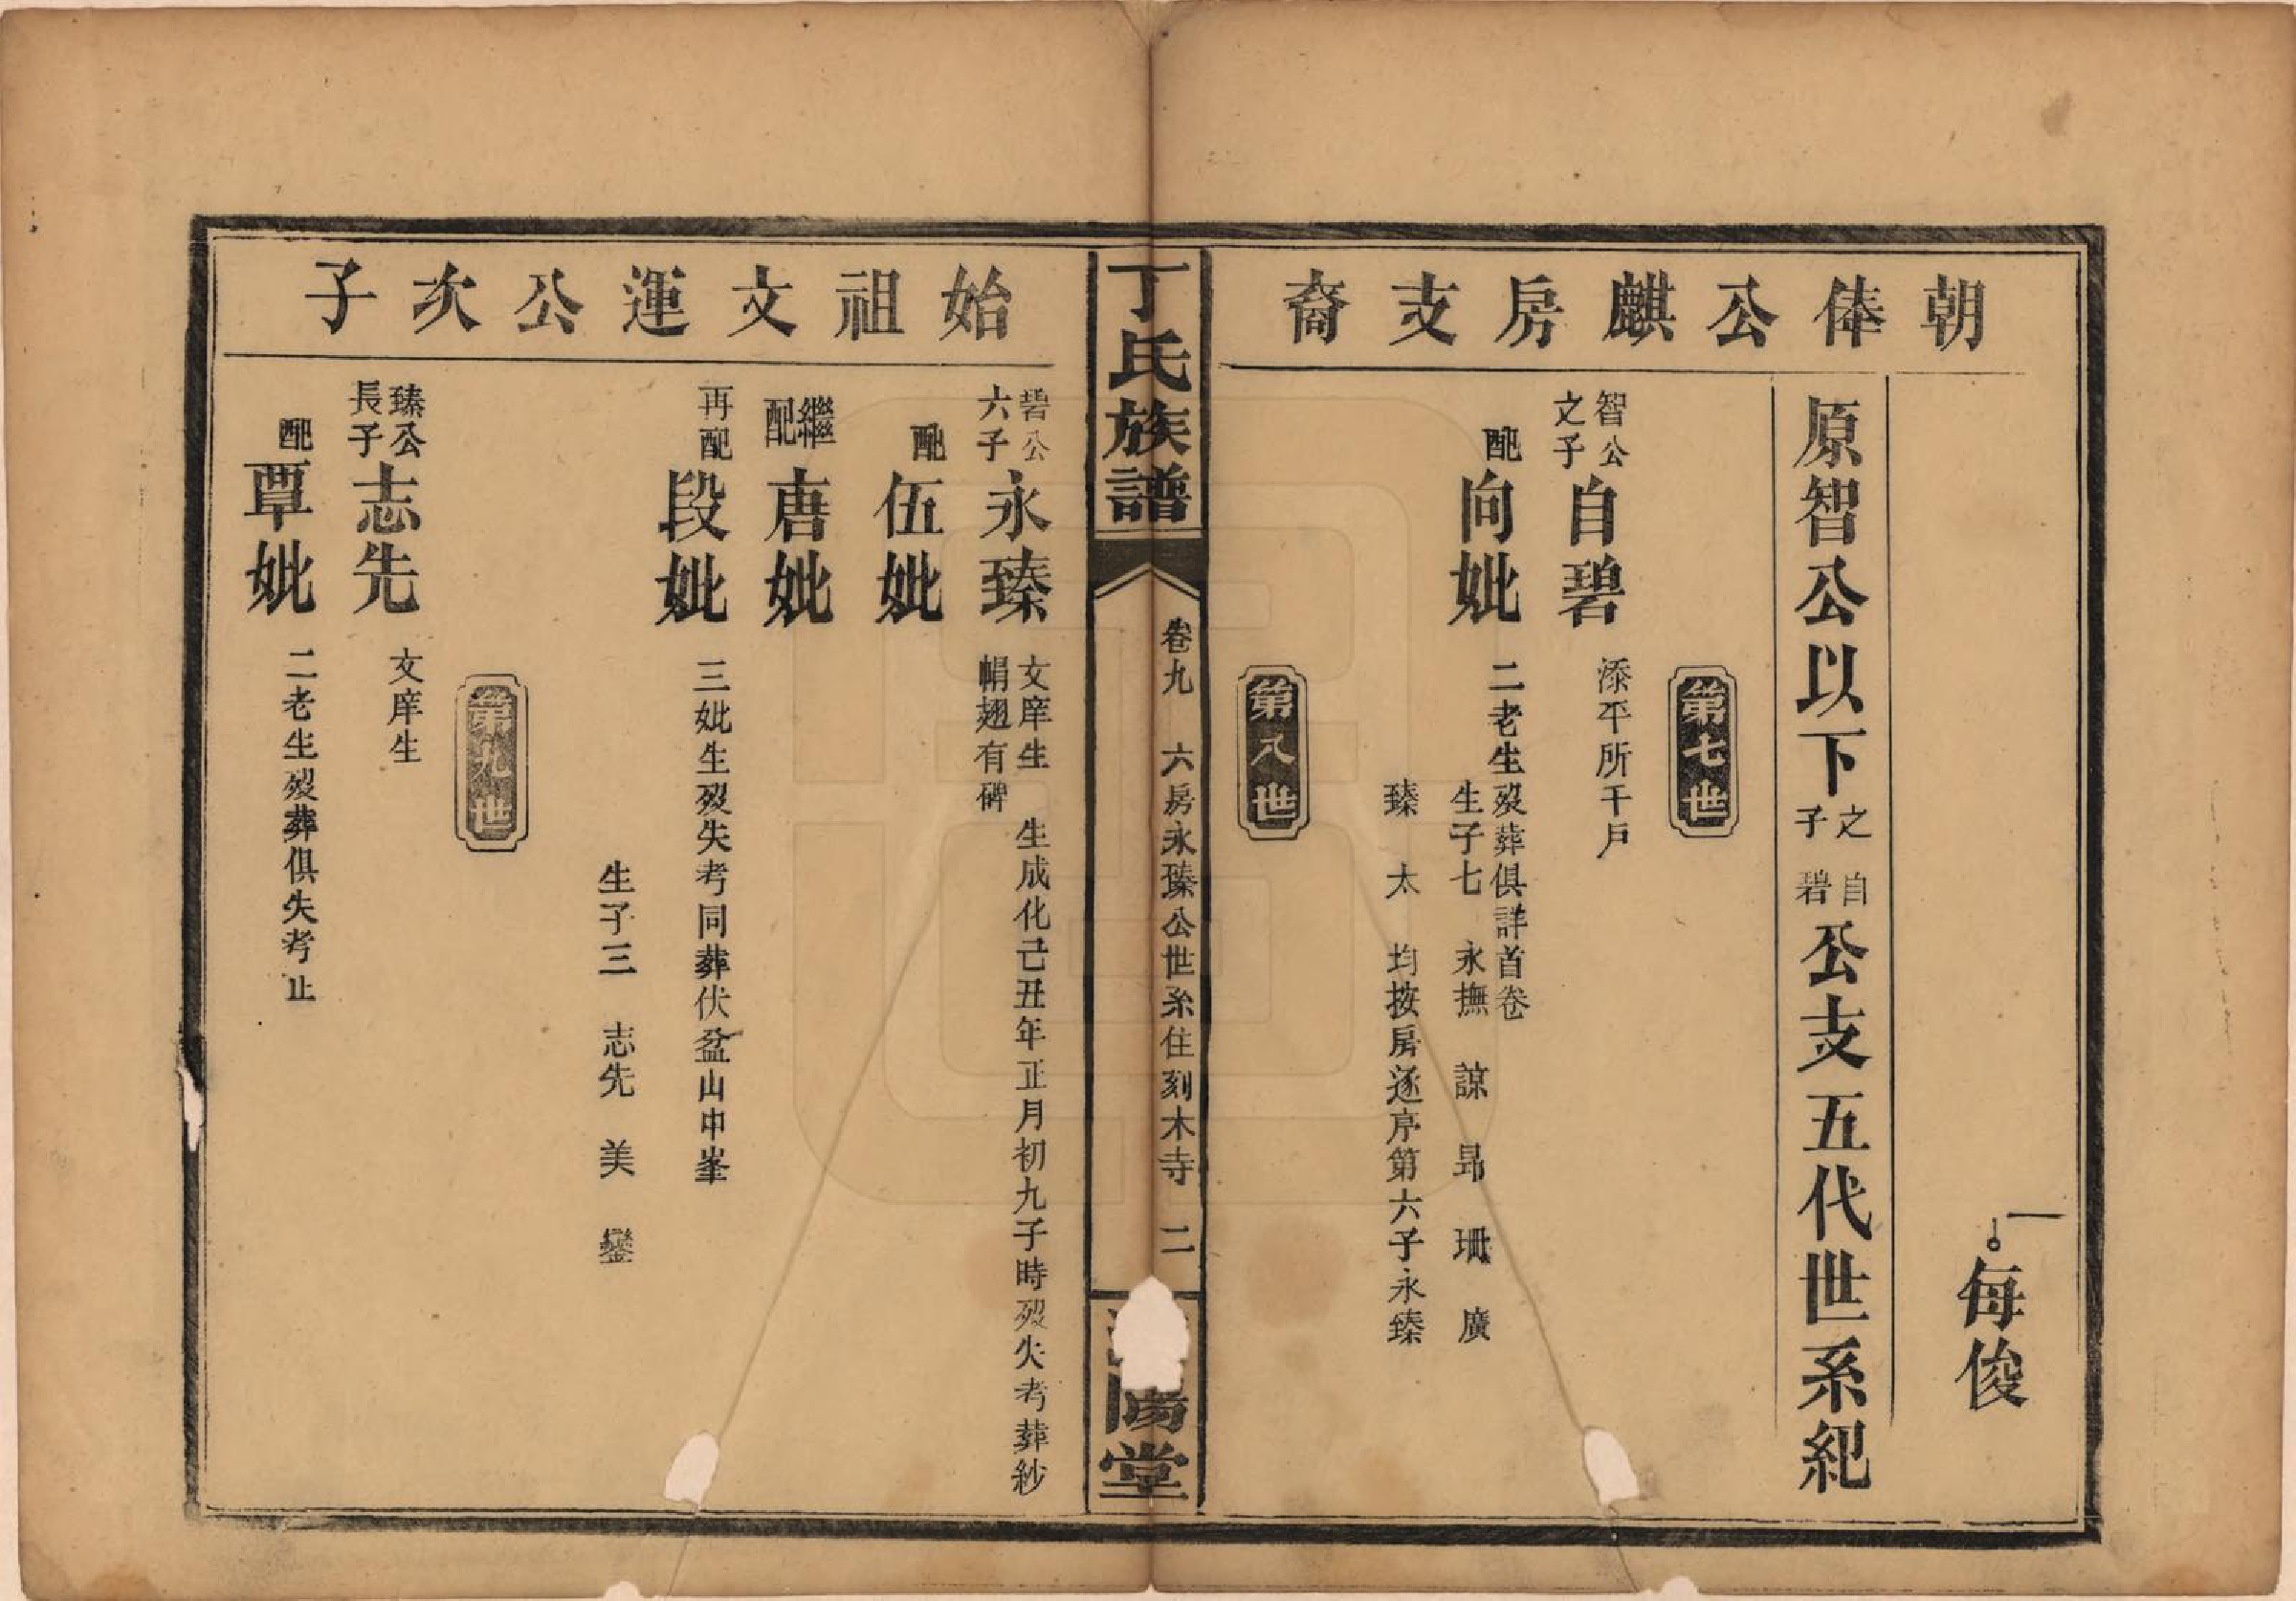 朝俸公麒房支裔
每俊
原智公以下之子自碧公支五代世系紀
第七世
智公之子自碧 添平所千戶
配向妣 二老生歿葬俱詳首卷
生子七 永撫 諒 昂 珊 廣
臻 太 均按房逐序第六子永臻
第八世
丁氏族譜 卷九 六房永臻公世系住刻木寺 二 陽堂
始祖文運公次子
碧公六子永臻 文庠生 生成化己丑年正月初九子時歿失考葬紗
帽翅有碑
配伍妣
繼配唐妣
再配段妣 三妣生歿失考同葬伏盆山中峯
生子三 志先 美 鑾
第九世
臻公長子志先 文庠生
配覃妣 二老生歿葬俱失考止